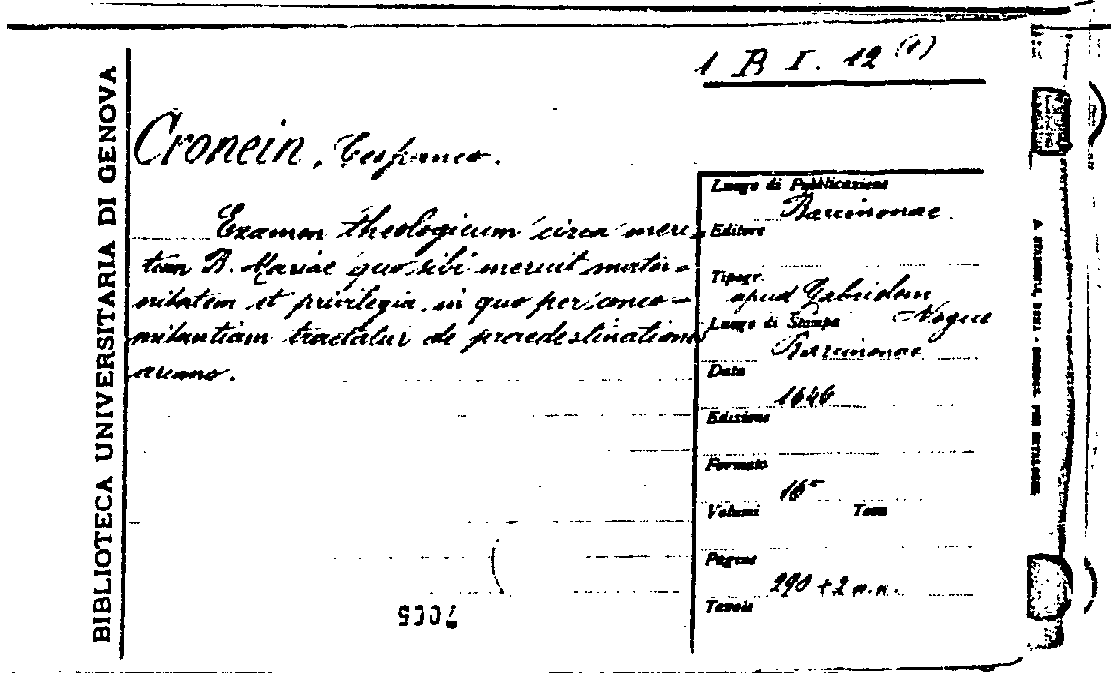 BIBLIOTECA UNIVERSITARIA DI GENOVA
1 B I. 12
Cronein,
Examen theologicum circa meri-
tum B. Mariae quo sibi meruit mater-
nitatem et privilegia, in quo per conco-
mitantiam tractatur de praedestinatione
arcano.
Luogo di Pubblicazione
Barcinonae
Editore
Tipogr.
apud Gabrielem
Nogues
Luogo di Stampa
Barcinonae
Data
1646
Edizione
Formato
16°
Volumi Tomi
Pagine
290 + 2 n. n.
Tavole